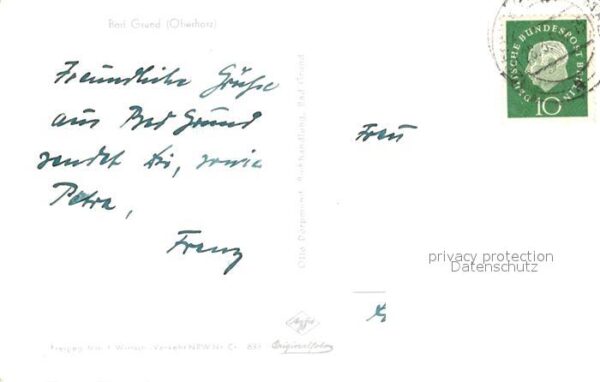 Bad Grund (Oberharz)
Freundliche Grüße
aus Bad Grund
sendet Dir, sowie
Petra,
Franz
Otto Dörgmund, Buchhandlung, Bad Grund
Frau
DEUTSCHE BUNDESPOST BERLIN
10
privacy protection
Datenschutz
Agfa
Originalfoto